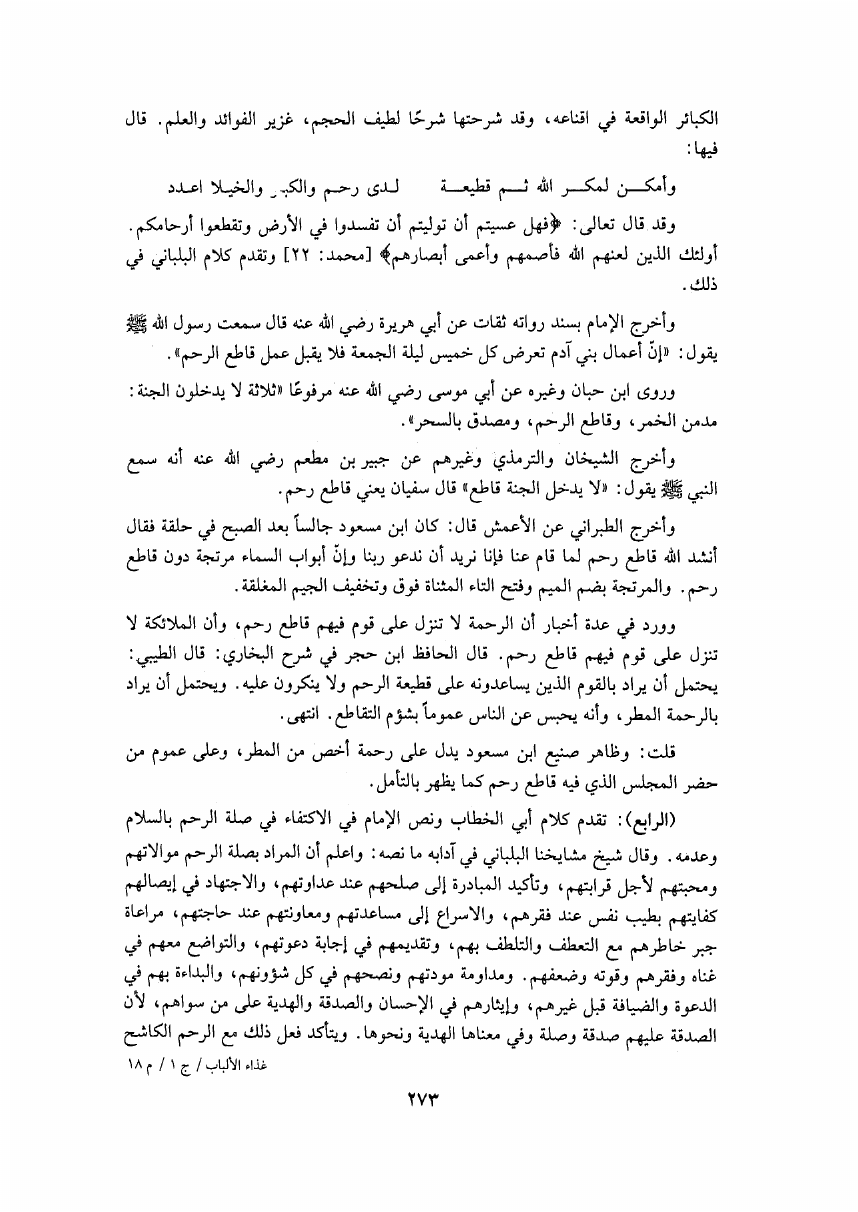 الكبائر الواقعة في اقناعه، وقد شرحتها شرحًا لطيف الحجم، غزير الفوائد والعلم. قال
فيها:
وأمكـــن لمكـــر الله ثـــم قطيعـــة لـدى رحـم والكبـر والخيـلا اعـدد
وقد قال تعالى: ﴿فهل عسيتم أن توليتم أن تفسدوا في الأرض وتقطعوا أرحامكم.
أولئك الذين لعنهم الله فأصمهم وأعمى أبصارهم﴾ [محمد: ٢٢] وتقدم كلام البلباني في
ذلك.
وأخرج الإمام بسند رواته ثقات عن أبي هريرة رضي الله عنه قال سمعت رسول الله ﷺ
يقول: «إنّ أعمال بني آدم تعرض كل خميس ليلة الجمعة فلا يقبل عمل قاطع الرحم».
وروى ابن حبان وغيره عن أبي موسى رضي الله عنه مرفوعًا «ثلاثة لا يدخلون الجنة:
مدمن الخمر، وقاطع الرحم، ومصدق بالسحر».
وأخرج الشيخان والترمذي وغيرهم عن جبير بن مطعم رضي الله عنه أنه سمع
النبي ﷺ يقول: «لا يدخل الجنة قاطع» قال سفيان يعني قاطع رحم.
وأخرج الطبراني عن الأعمش قال: كان ابن مسعود جالساً بعد الصبح في حلقة فقال
أنشد الله قاطع رحم لما قام عنا فإنا نريد أن ندعو ربنا وإنّ أبواب السماء مرتجة دون قاطع
رحم. والمرتجة بضم الميم وفتح التاء المثناة فوق وتخفيف الجيم المغلقة.
وورد في عدة أخبار أن الرحمة لا تنزل على قوم فيهم قاطع رحم، وأن الملائكة لا
تنزل على قوم فيهم قاطع رحم. قال الحافظ ابن حجر في شرح البخاري: قال الطيبي:
يحتمل أن يراد بالقوم الذين يساعدونه على قطيعة الرحم ولا ينكرون عليه. ويحتمل أن يراد
بالرحمة المطر، وأنه يحبس عن الناس عموماً بشؤم التقاطع. انتهى.
قلت: وظاهر صنيع ابن مسعود يدل على رحمة أخص من المطر، وعلى عموم من
حضر المجلس الذي فيه قاطع رحم كما يظهر بالتأمل.
(الرابع): تقدم كلام أبي الخطاب ونص الإمام في الاكتفاء في صلة الرحم بالسلام
وعدمه. وقال شيخ مشايخنا البلباني في آدابه ما نصه: واعلم أن المراد بصلة الرحم موالاتهم
ومحبتهم لأجل قرابتهم، وتأكيد المبادرة إلى صلحهم عند عداوتهم، والاجتهاد في إيصالهم
كفايتهم بطيب نفس عند فقرهم، والاسراع إلى مساعدتهم ومعاونتهم عند حاجتهم، مراعاة
جبر خاطرهم مع التعطف والتلطف بهم، وتقديمهم في إجابة دعوتهم، والتواضع معهم في
غناه وفقرهم وقوته وضعفهم. ومداومة مودتهم ونصحهم في كل شؤونهم، والبداءة بهم في
الدعوة والضيافة قبل غيرهم، وإيثارهم في الإحسان والصدقة والهدية على من سواهم، لأن
الصدقة عليهم صدقة وصلة وفي معناها الهدية ونحوها. ويتأكد فعل ذلك مع الرحم الكاشح
غذاء الألباب / ج ١ / م ١٨
٢٧٣